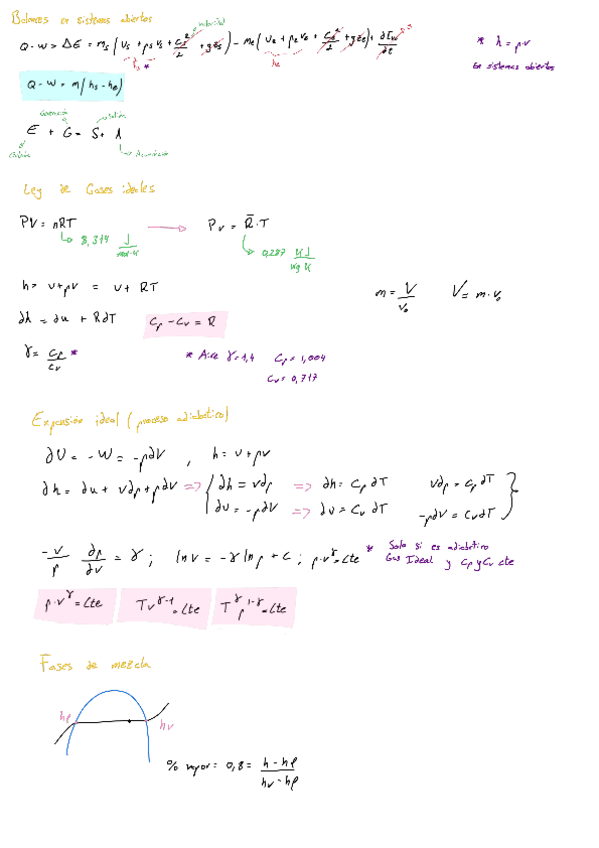 Balances en sistemas abiertos
velocidad
Q - W = ΔE = ms (us + ps vs + cs²/2 + gzs) - me (ue + pe ve + ce²/2 + gze) + ∂Ew/∂t
hs * he
* h = pv
En sistemas abiertos
Q - W = m(hs - he)
Generación Salida
E + G = S + A
Entrada Acumulación
Ley de Gases ideales
PV = nRT → Pv = R̄·T
8,314 J/mol·K
0,287 KJ/Kg K
h = u + pv = u + RT
m = V/v₀ V = m·v₀
∂h = ∂u + R∂T Cp - Cv = R
γ = Cp/Cv * * Aire γ = 1,4 Cp = 1,004
Cv = 0,717
Expansión ideal (proceso adiabático)
∂U = -W = -p∂V , h = u + pv
∂h = ∂u + v∂p + p∂v ⇒ { ∂h = v∂p ⇒ ∂h = Cp ∂T v∂p = Cp ∂T }
∂u = -p∂v ⇒ ∂u = Cv ∂T -p∂v = Cv∂T
-v/p ∂p/∂v = γ ; ln v = -γ ln p + C ; p·v^γ = Cte * Solo si es adiabático
Gas Ideal y Cp y Cv cte
p·v^γ = Cte Tv^γ-1 = Cte T^γ p^1-γ = Cte
Fases de mezcla
hl hv
% vapor = 0,8 = h - hl / hv - hl